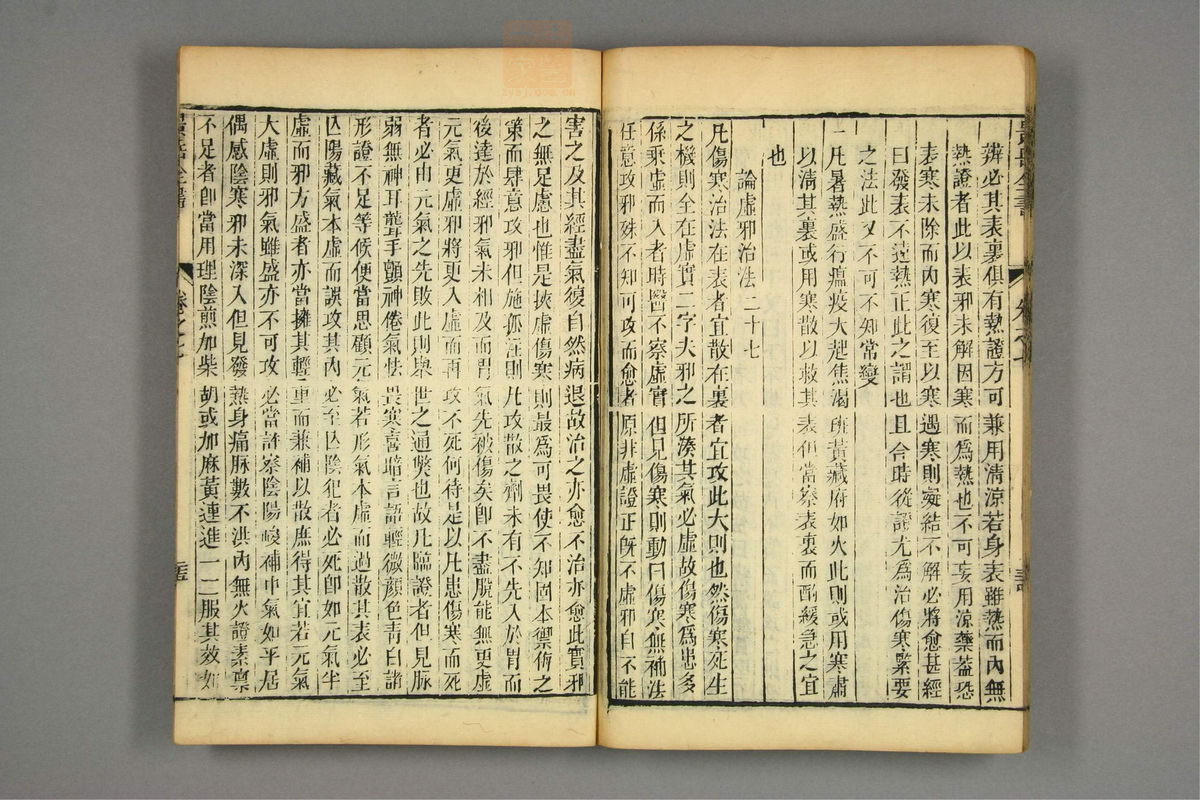 辨必其表裏俱有熱證方可兼用清涼若身表雖熱而內無
熱證者此以表邪未解因寒而爲熱也不可妄用涼藥蓋恐
表寒未除而內寒復至以寒遇寒則凝結不解必將愈甚經
曰發表不遠熱正此之謂也且合時從證尤爲治傷寒緊要
之法此又不可不知常變
一凡暑熱盛行瘟疫大起焦渴班黃藏府如火此則或用寒肅
以清其裏或用寒散以救其表但當察表裏而酌緩急之宜
也
論虛邪治法 二十七
凡傷寒治法在表者宜散在裏者宜攻此大則也然傷寒死生
之機則全在虛實二字夫邪之所湊其氣必虛故傷寒爲患多
係乘虛而入者時醫不察虛實但見傷寒則動曰傷寒無補法
任意攻邪殊不知可攻而愈者原非虛證正旣不虛邪自不能
害之及其經盡氣復自然病退故治之亦愈不治亦愈此實邪
之無足慮也惟是挾虛傷寒則最爲可畏使不知固本禦侮之
策而肆意攻邪但施孤注則凡攻散之劑未有不先入於胃而
後達於經邪氣未相及而胃氣先被傷矣卽不盡脫能無更虛
元氣更虛邪將更入虛而再攻不死何待是以凡患傷寒而死
者必由元氣之先敗此則舉世之通獘也故凡臨證者但見脈
弱無神耳聾手顫神倦氣怯畏寒喜暗言語輕微顏色青白諸
形證不足等候便當思顧元氣若形氣本虛而過散其表必至
亾陽藏氣本虛而誤攻其內必至亾陰犯者必死卽如元氣半
虛而邪方盛者亦當權其輕重而兼補以散庶得其宜若元氣
大虛則邪氣雖盛亦不可攻必當詳察陰陽峻補中氣如平居
偶感陰寒邪未深入但見發熱身痛脈數不洪內無火證素禀
不足者卽當用理陰煎加柴胡或加麻黃連進一二服其效如